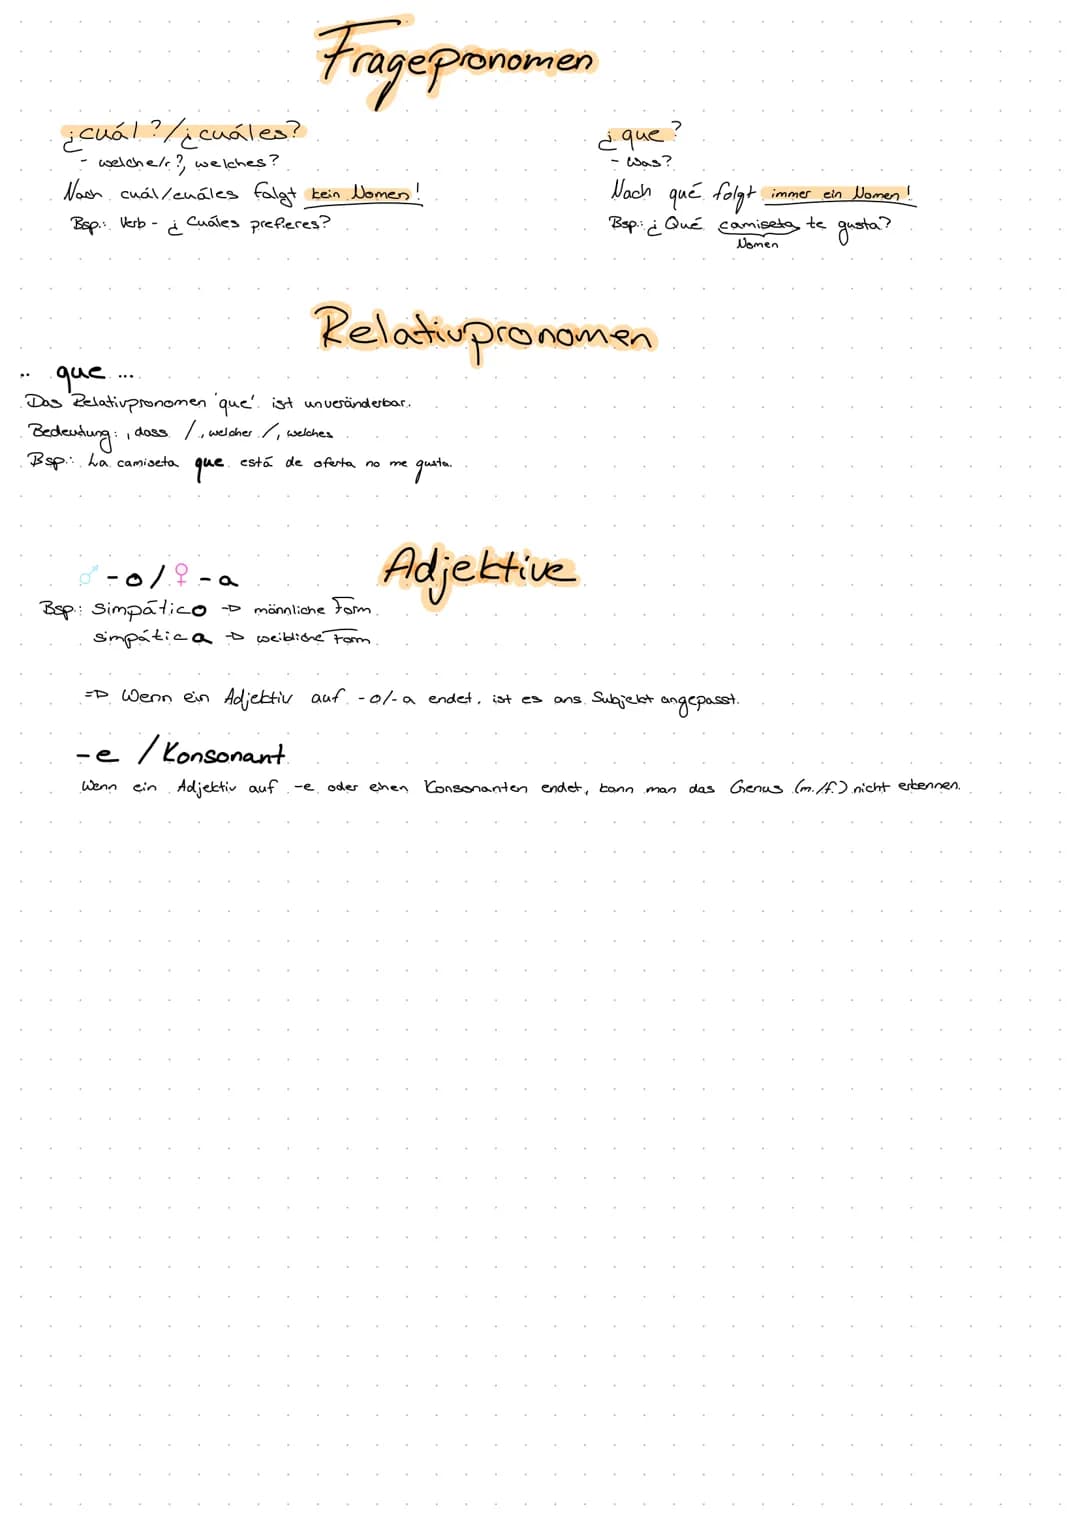 Fragepronomen
¿cuál?/¿cuáles?
- welche/r?, welches?
Nach cuál/cuáles folgt kein Nomen!
Bsp.: Verb - ¿Cuáles prefieres?
¿que?
- Was?
Nach qué folgt immer ein Nomen!
Bsp.: ¿Qué camiseta te gusta?
Nomen
Relativpronomen
.. que ...
Das Relativpronomen 'que' ist unveränderbar.
Bedeutung: , dass /, welcher /, welches
Bsp.: La camiseta que está de oferta no me gusta.
Adjektive
♂ -o/♀ -a
Bsp.: Simpático → männliche Form
simpática → weibliche Form
=> Wenn ein Adjektiv auf -o/-a endet, ist es ans Subjekt angepasst.
-e / Konsonant
Wenn ein Adjektiv auf -e oder einen Konsonanten endet, kann man das Genus (m./f.) nicht erkennen.